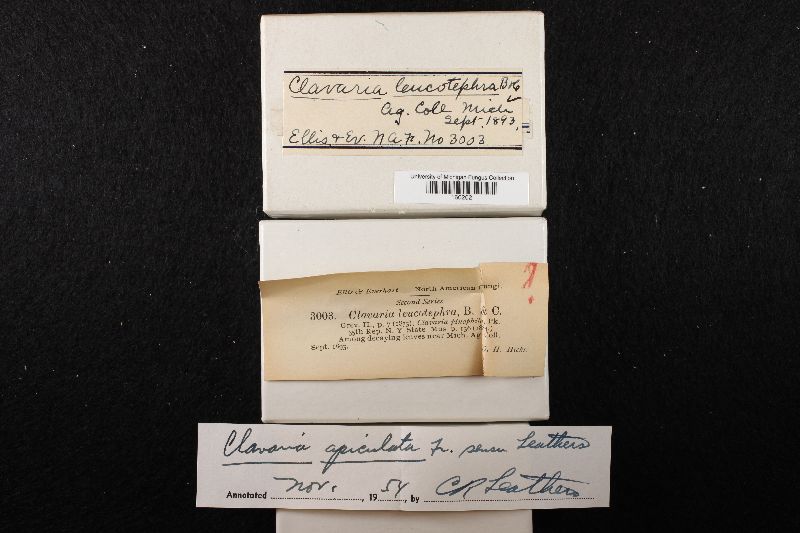 Clavaria leucotephra B&C
Ag. Coll Mich
Sept. 1893.
Ellis & Ev. N.A.F. No 3003
University of Michigan Fungus Collection
Ellis & Everhart North American Fungi.
Second Series
3003. Clavaria leucotephra, B. & C.
Grev. II., p. 7 (1873), Clavaria pinophila, Pk.
35th Rep. N. Y. State Mus. p.
Among decaying leaves near Mich. Ag Coll.
Sept. 1893. H. Hicks.
Clavaria apiculata Fr. sensu Leathers
Annotated Nov. , 1954, by CR Leathers